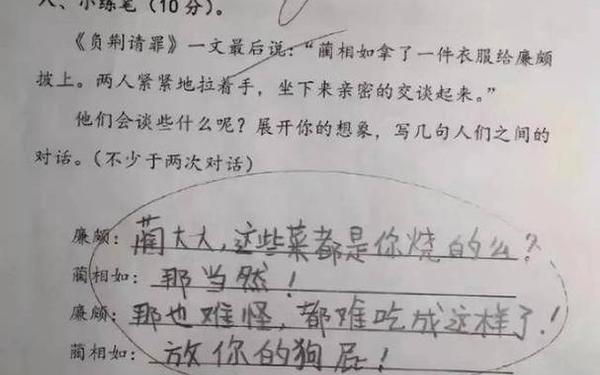 八、小练笔（10分）。
《负荆请罪》一文最后说：“蔺相如拿了一件衣服给廉颇
披上。两人紧紧地拉着手，坐下来亲密的交谈起来。”
他们会谈些什么呢？展开你的想象，写几句人们之间的
对话。（不少于两次对话）
廉颇：蔺大大，这些菜都是你烧的么？
蔺相如：那当然！
廉颇：那也难怪，都难吃成这样了！
蔺相如：放你的狗屁！